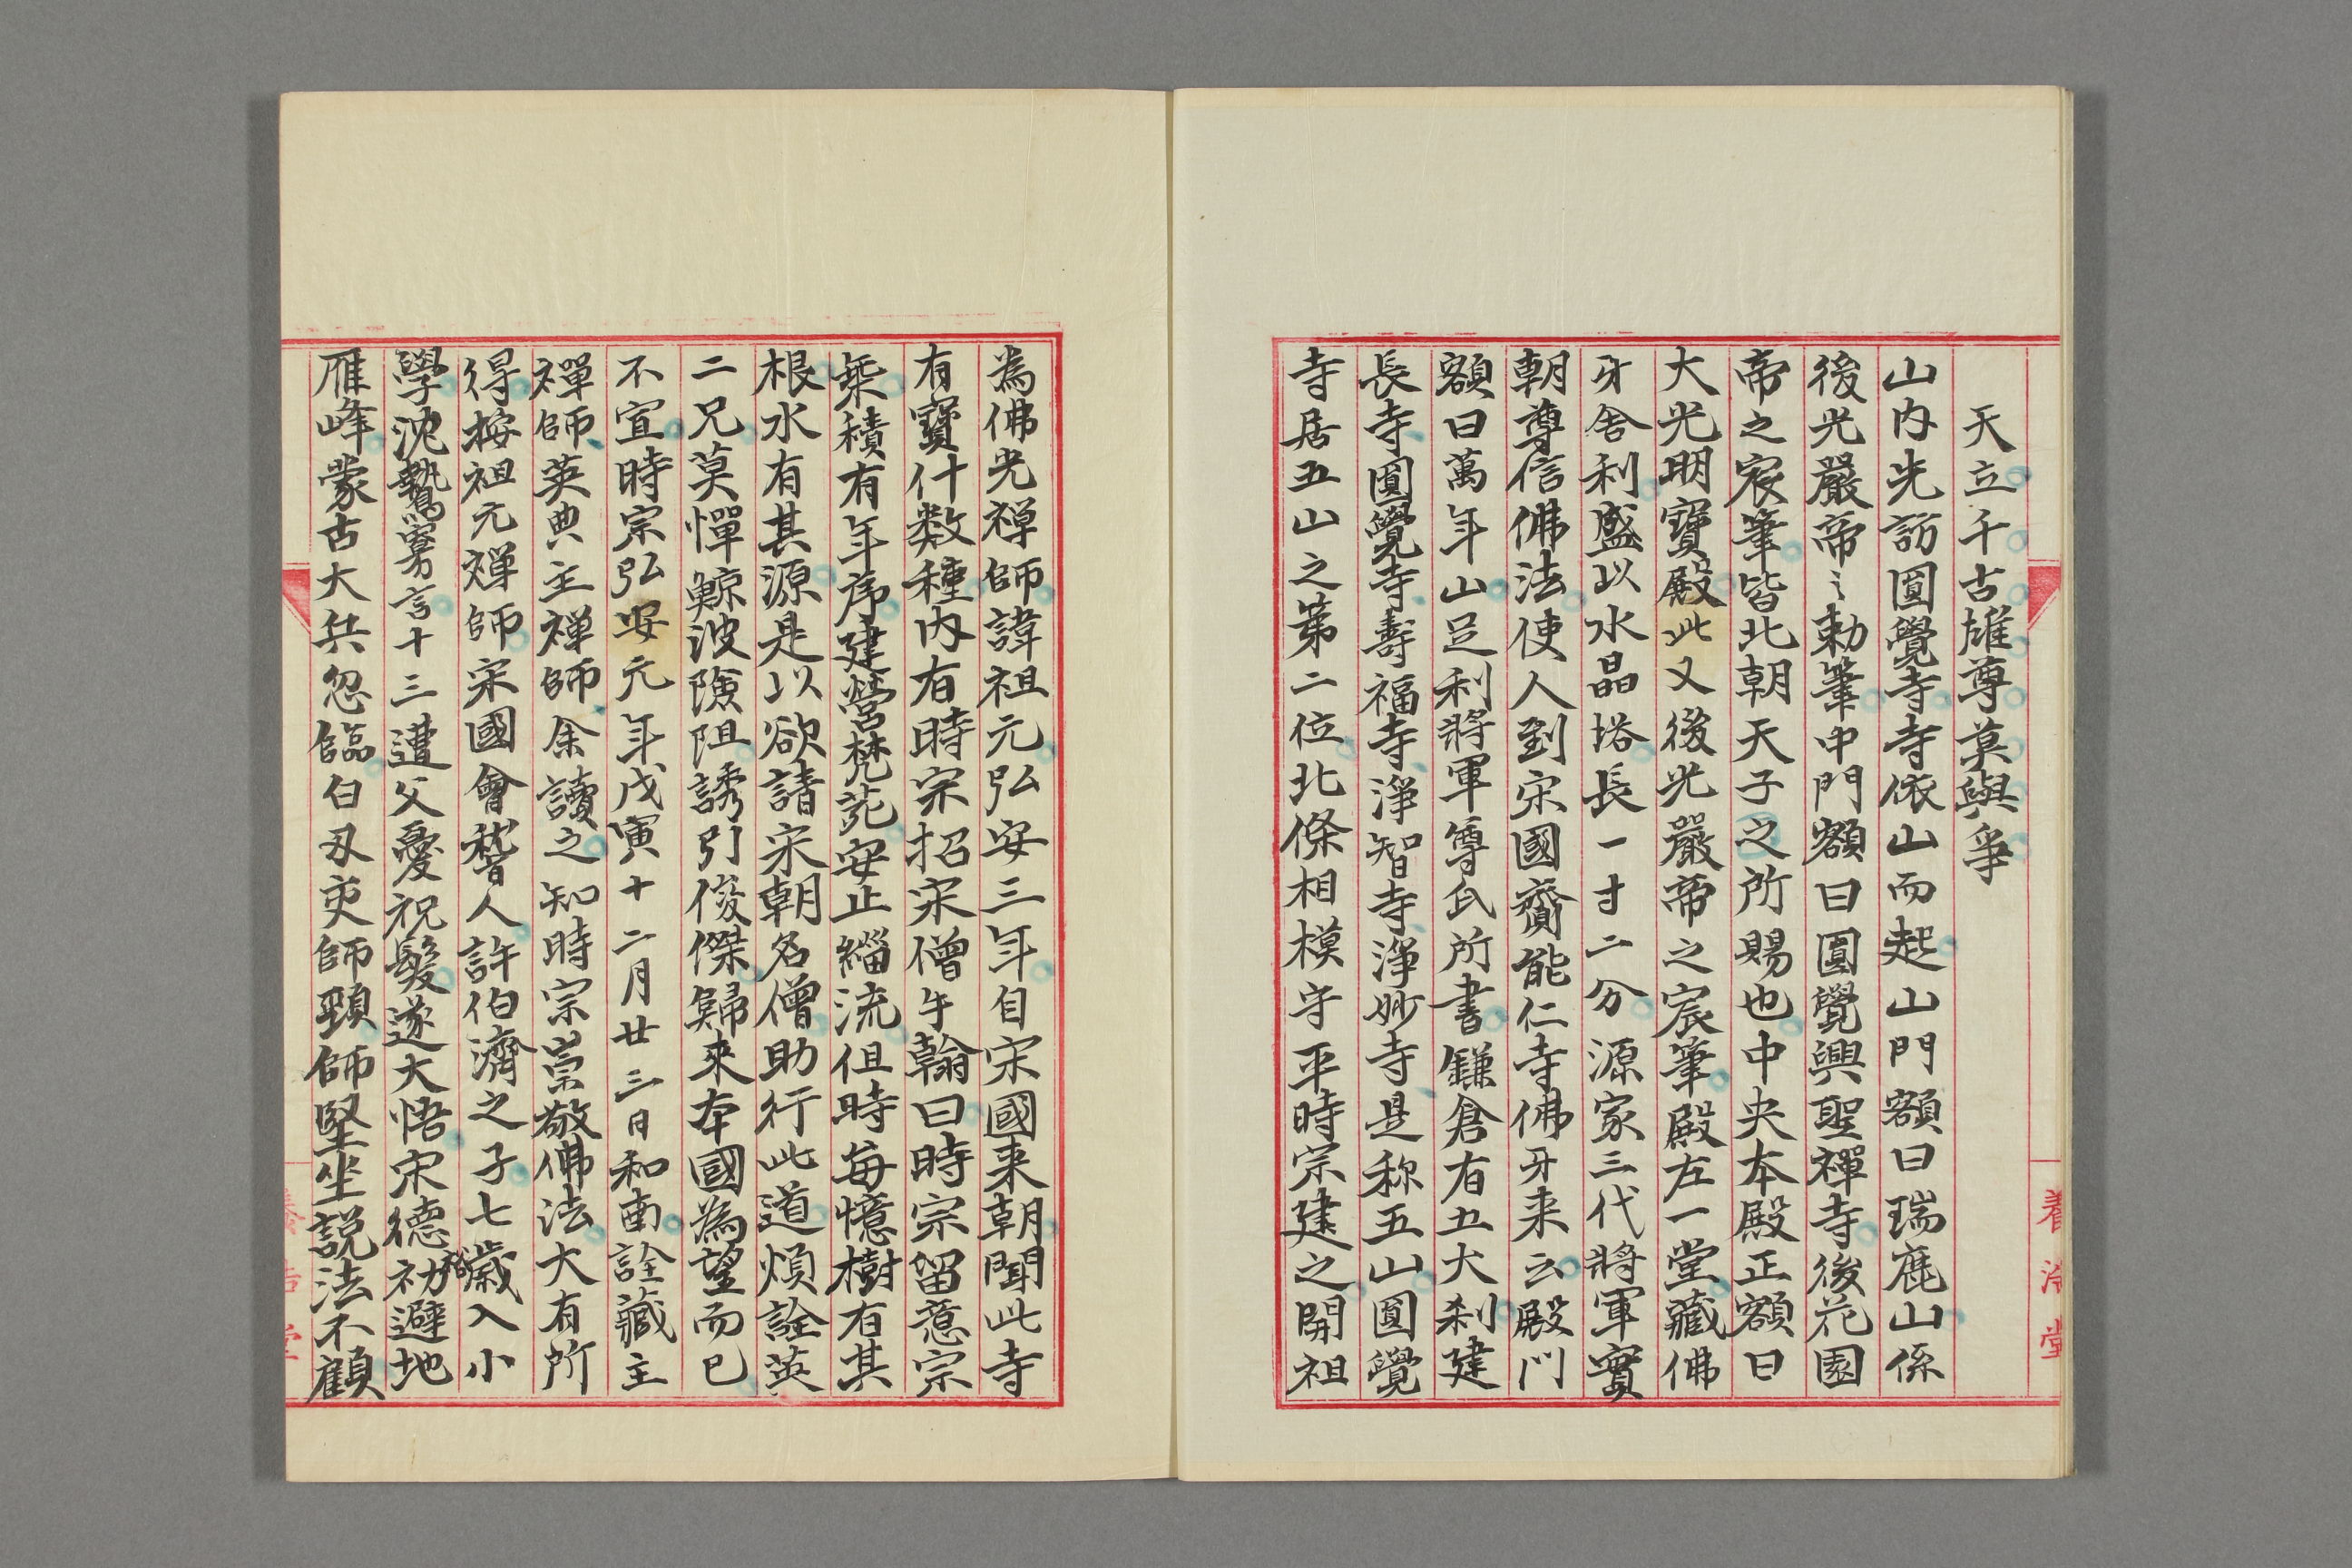 天立千古雄尊莫與爭
山内先訪圓覺寺寺依山而起山門額曰瑞鹿山係
後光嚴帝〻勅筆中門額曰圓覺興聖禪寺後花園
帝之宸筆皆北朝天子之所賜也中央本殿正額曰
大光明寶殿此又後光嚴帝之宸筆殿左一堂藏佛
牙舍利盛以水晶塔長一寸二分源家三代將軍實
朝尊信佛法使人到宋國齎能仁寺佛牙来云殿門
額曰萬年山足利將軍尊氏所書鎌倉有五大刹建
長寺圓覺寺壽福寺淨智寺淨妙寺是称五山圓覺
寺居五山之第二位北條相模守平時宗建之開祖
為佛光禅師諱祖元弘安三年自宋國来朝聞此寺
有寶什数種内有時宗招宋僧牛翰曰時宗留意宗
乗積有年序建營梵苑安止緇流但時每憶樹有其
根水有其源是以欲請宋朝名僧助行此道煩詮英
二兄莫憚鯨波險阻誘引俊傑歸來本國為望而已
不宣時宗弘安元年戊寅十二月廿三日和南詮藏主
禪師英典主禅師余讀之知時宗崇敬佛法大有所
得按祖元禅師宋國會稽人許伯濟之子七歲入小
學沈鷙寡言十三遭父憂祝髮遂大悟宋德祐初避地
雁峰蒙古大兵忽臨白刃吏師頸師堅坐説法不顧
養浩堂